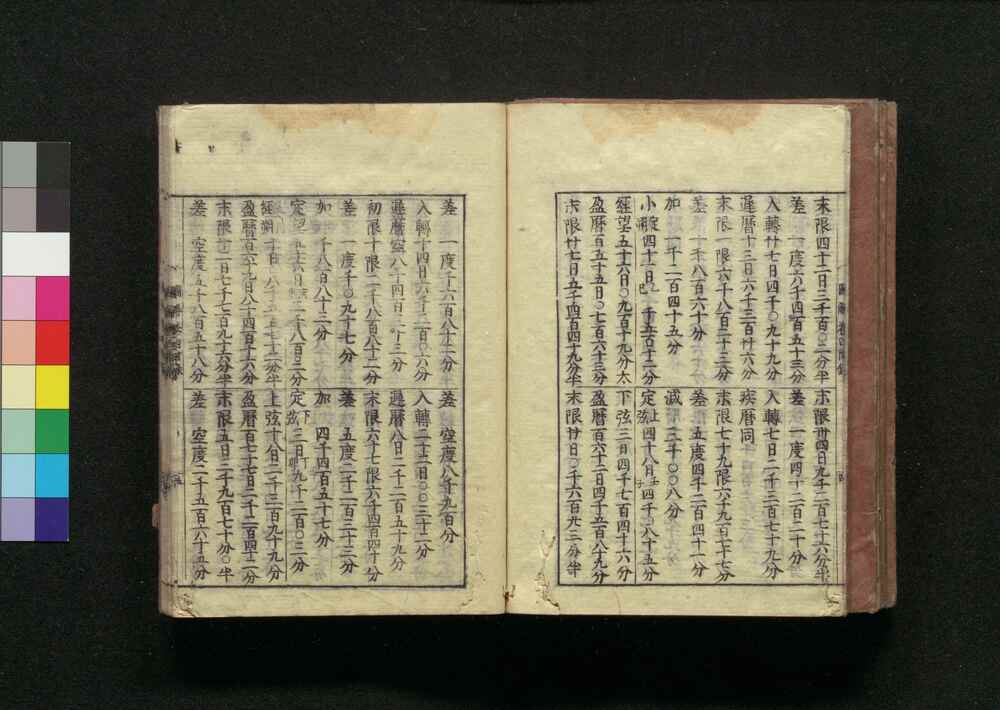 末限四十二日二千百〇二分半
差　一度六千四百五十三分
入轉廿七日四千〇九十九分
遲暦十三日六千三百廿六分
末限一限六千八百二十三分
差　一千八百六十分
加　一千二百四十五分
小定朔四十二日　巳　千五百十二分
經望五十六日〇九百十九分太
盈暦百五十五日〇七百六十三分
末限廿七日五千四百四十九分半
末限卅四日九千二百七十六分半
差　一度四千二百二十分
入轉七日二千三百七十九分
疾暦同
末限七十九限六千九百七十七分
差　五度四千二百四十一分
減　二千〇〇八分
定上弦四十八日　四千〇八十五分
下弦三日四千七百四十六分
盈暦百六十二日四千五百八十九分
末限廿日〇千六百廿二分半
差　一度千六百八十二分
入轉十四日六千二百〇六分
遲暦空八千四百二十三分
初限十限二千八百八十二分
差　一度千〇九十七分
加　千八百八十二分
定望五十六日　二千八百〇二分
經朔十日　分半
盈暦百六十九日八千四百十六分
末限十二日七千七百九十六分半
差　空度五千八百五十八分
差　空度八千九百分
入轉二十二日〇〇三十二分
遲暦八日二千二百五十九分
末限六十七限六千四百四十分
差　五度二千二百三十三分
加　四千四百五十七分
定下弦三日　九千二百〇三分
上弦十八日二千三百九十九分
盈暦百七十七日二千二百四十二分
末限五日二千九百七十分〇半
差　空度二千五百六十五分